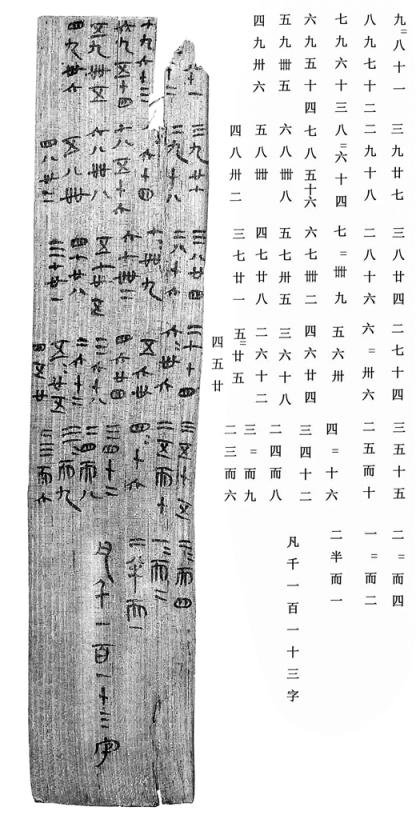 九=八十一
八九七十二
七九六十三
六九五十四
五九卌五
四九卅六
三九廿七
二九十八
八=六十四
七八五十六
六八卌八
五八卌
四八卅二
三八廿四
二八十六
七=卌九
六七卌二
五七卅五
四七廿八
三七廿一
二七十四
六=卅六
五六卅
四六廿四
三六十八
二六十二
五=廿五
四五廿
三五十五
二五而十
四=十六
三四十二
二四而八
三=而九
二三而六
二=而四
一=而二
二半而一
凡千一百一十三字